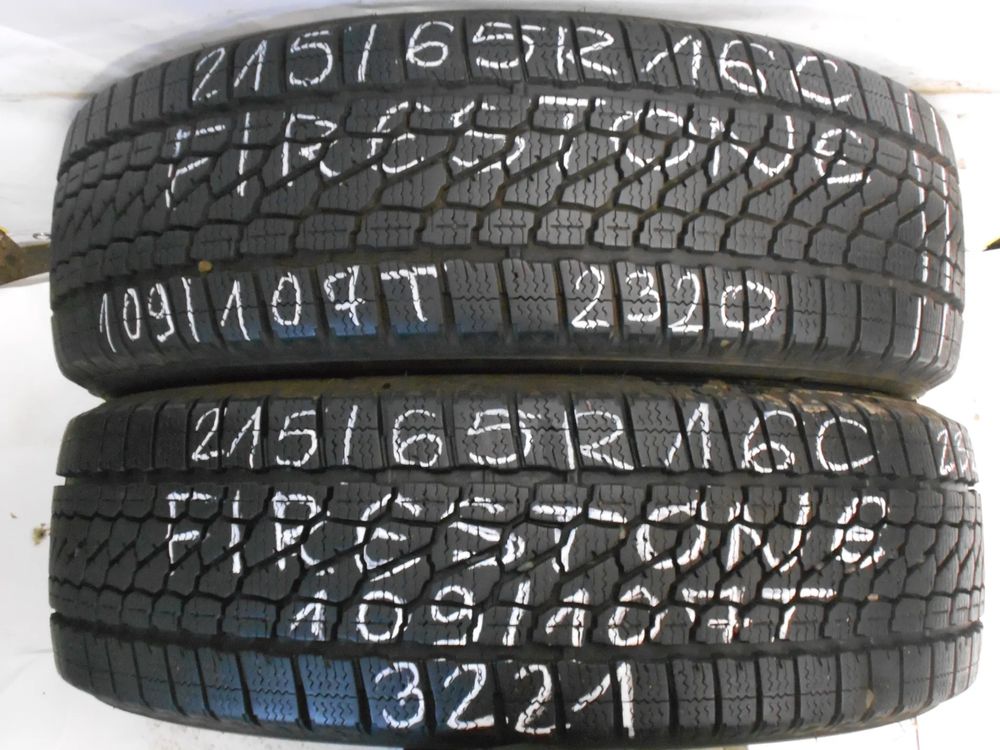 215/65R16C
FIRESTONE
109/107T 2320
215/65R16C
FIRESTONE
109/107T
3221